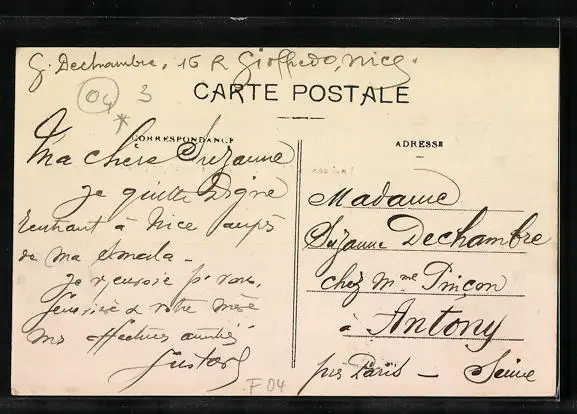 G. Dechambre, 15 R Gioffredo, Nice.
04 3
CARTE POSTALE
CORRESPONDANCE
ADRESSE
Ma chère Suzanne
je quitte Digne
Rentrant à Nice auprs
de ma
Je t'envoie pr vous,
& votre mère
mes affectueux amitiés
Gustave
F 04
Madame
Suzanne Dechambre
chez Mme Pinçon
à Antony
près Paris - Seine